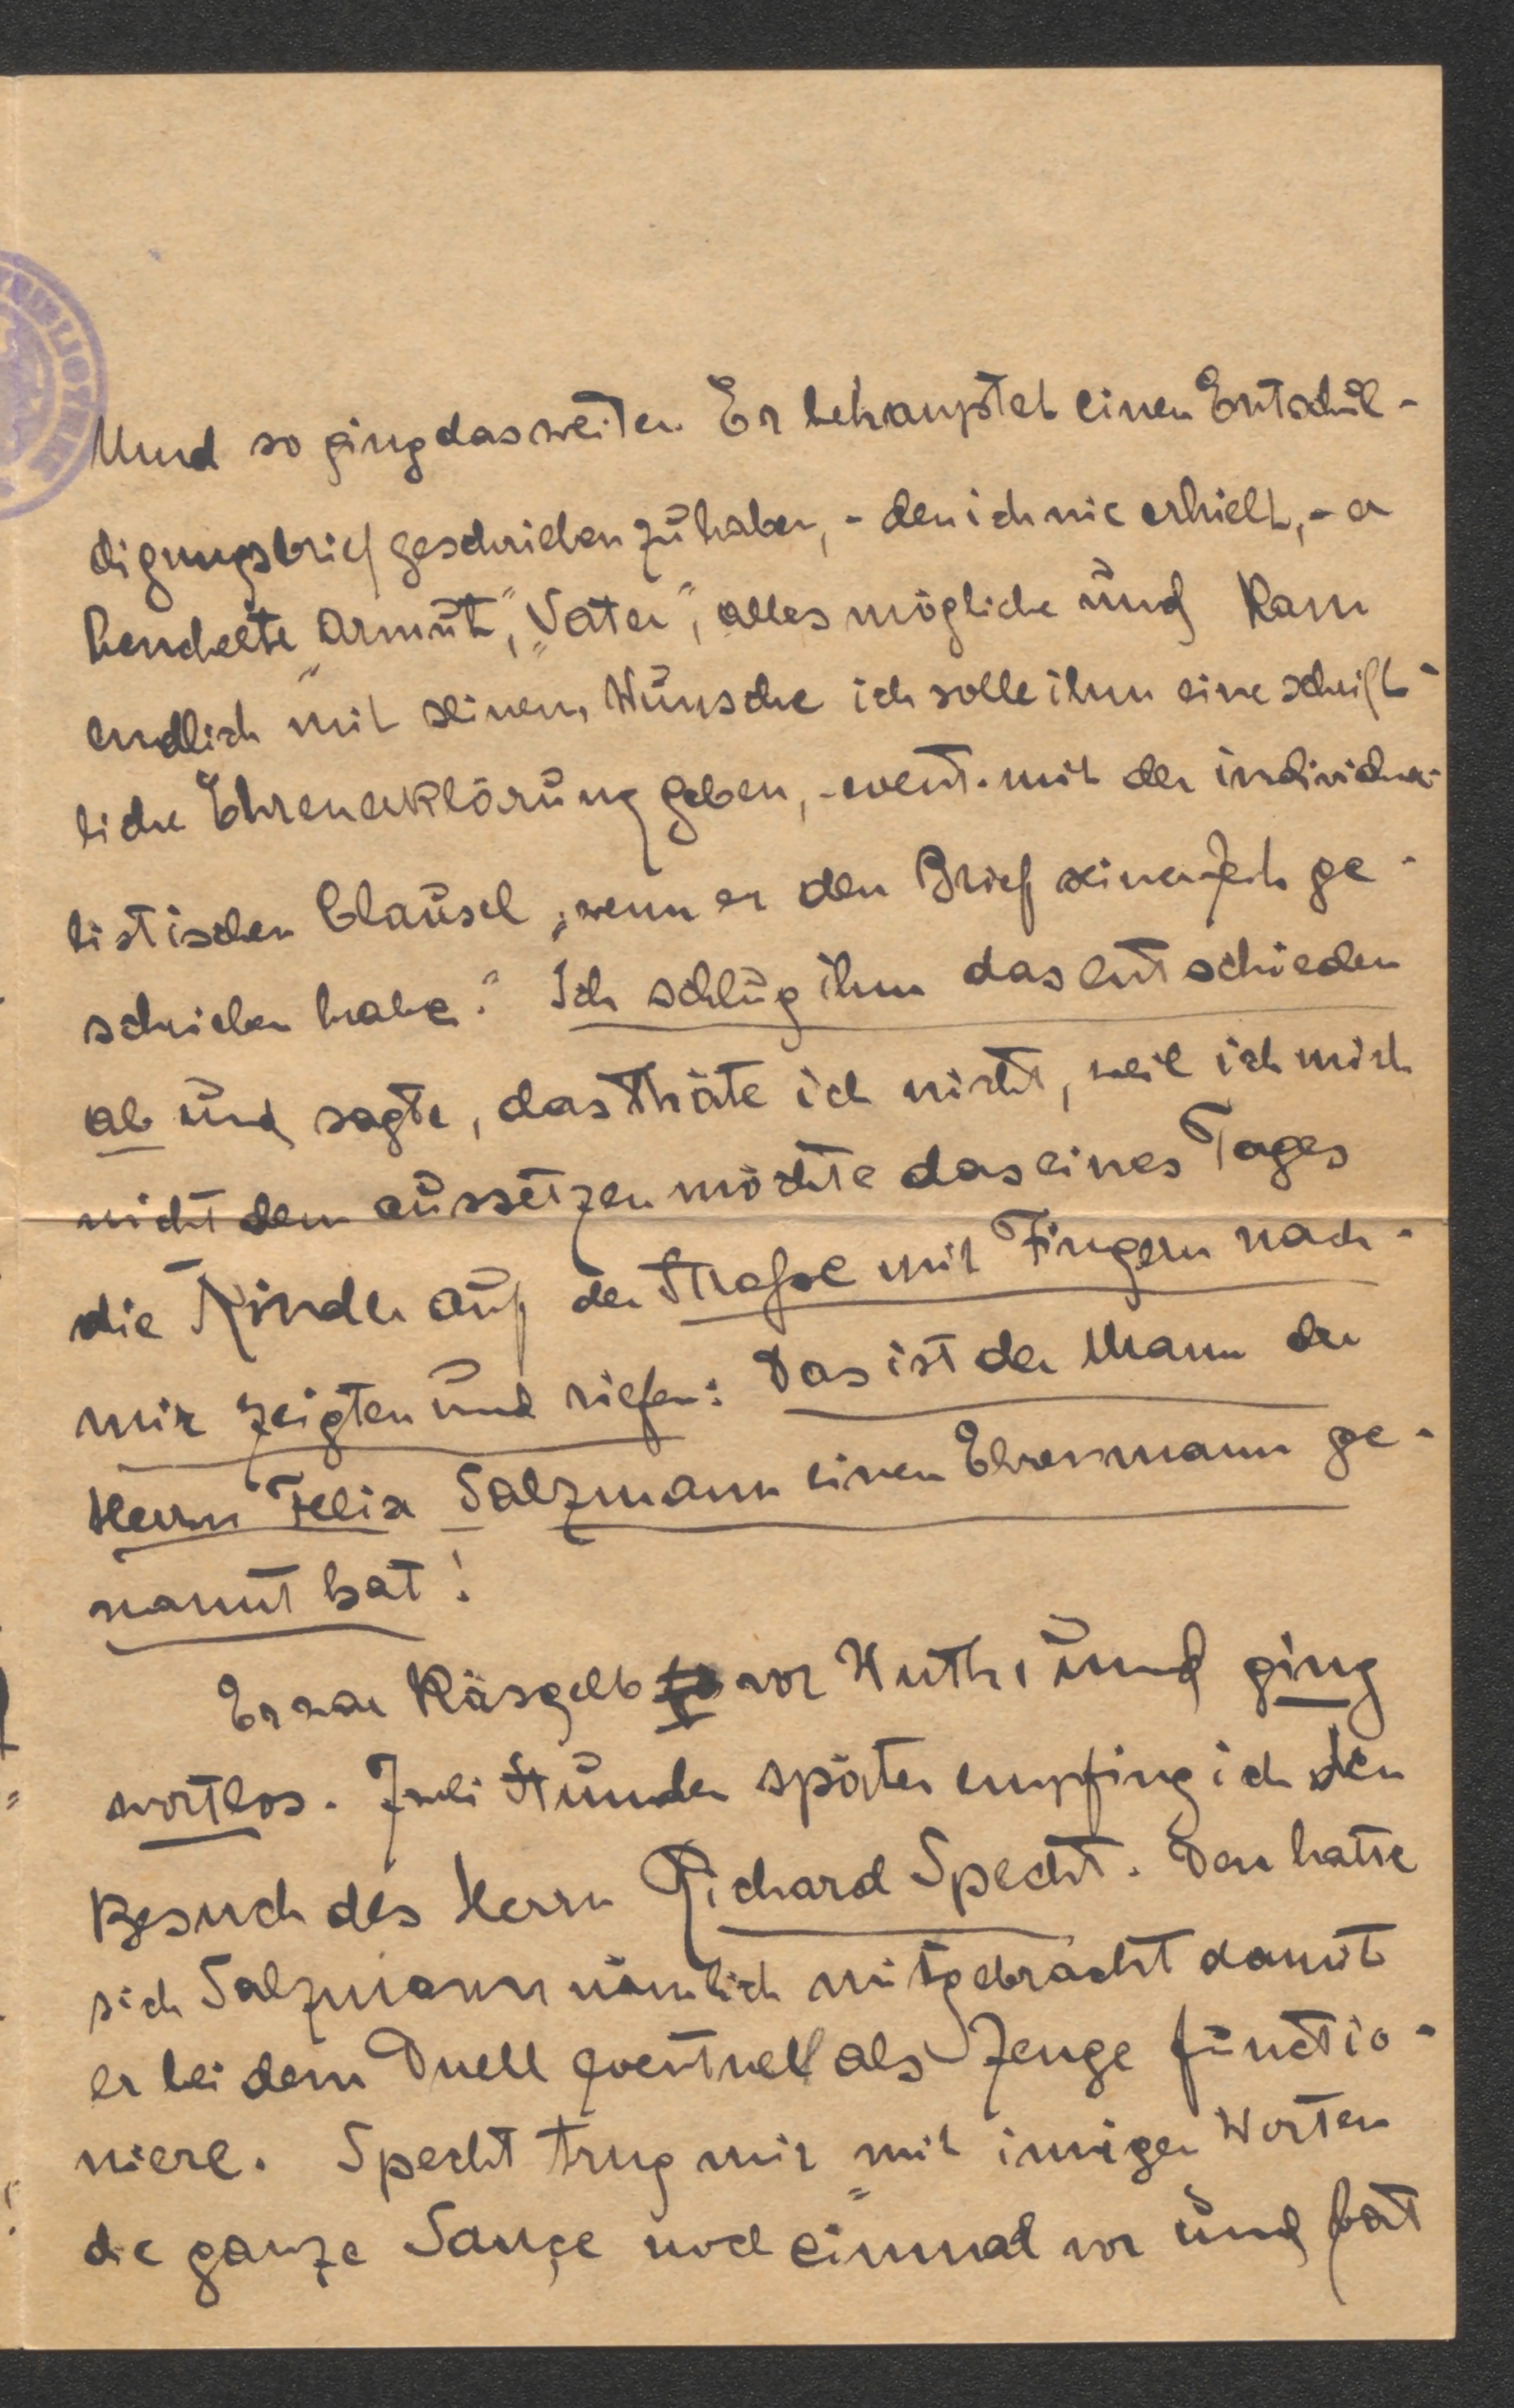 Und so ging das weiter. Er behauptet einen Entschul-
digungsbrief geschrieben zu haben, - den ich nie erhielt, - er
heuchelte „Armut“, „Vater“, alles mögliche und kam
endlich mit seinem Wunsche ich solle ihm eine schrift-
liche Ehrenerklärung geben, - event. mit der individua-
listischen Clausel „wenn er den Brief seinerzeit ge-
schrieben habe.“ Ich schlug ihm das entschieden
ab und sagte, das thäte ich nicht, weil ich mich
nicht dem aussetzen möchte das eines Tages
die Kinder auf der Strasse mit Fingern nach-
mir zeigten und riefen: Das ist der Mann der
Herrn Felix Salzmann einen Ehrenmann ge-
nannt hat!
Er war käsgelb vor Wuth, und ging
wortlos. Zwei Stunden später empfing ich den
Besuch des Herrn Richard Specht. Den hatte
sich Salzmann nämlich mitgebracht damit
er bei dem Duell eventuell als Zeuge functio-
niere. Specht trug mir „mit innigen Worten
die ganze Sauçe noch einmal vor und bat